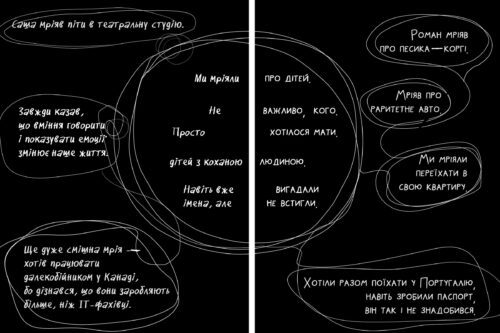 Саша мріяв піти в театральну студію.
Завжди казав,
що вміння говорити
і показувати емоції
змінює наше життя.
Ще дуже смішна мрія —
хотів працювати
далекобійником у Канаді,
бо дізнався, що вони заробляють
більше, ніж ІТ-фахівці.
Ми мріяли про дітей.
Не важливо, кого.
Просто хотілося мати
дітей з коханою людиною.
Навіть вже вигадали
імена, але не встигли.
Роман мріяв
про песика — коргі.
Мріяв про
раритетне авто.
Ми мріяли
переїхати в
свою квартиру.
Хотіли разом поїхати у Португалію,
навіть зробили паспорт,
він так і не знадобився.